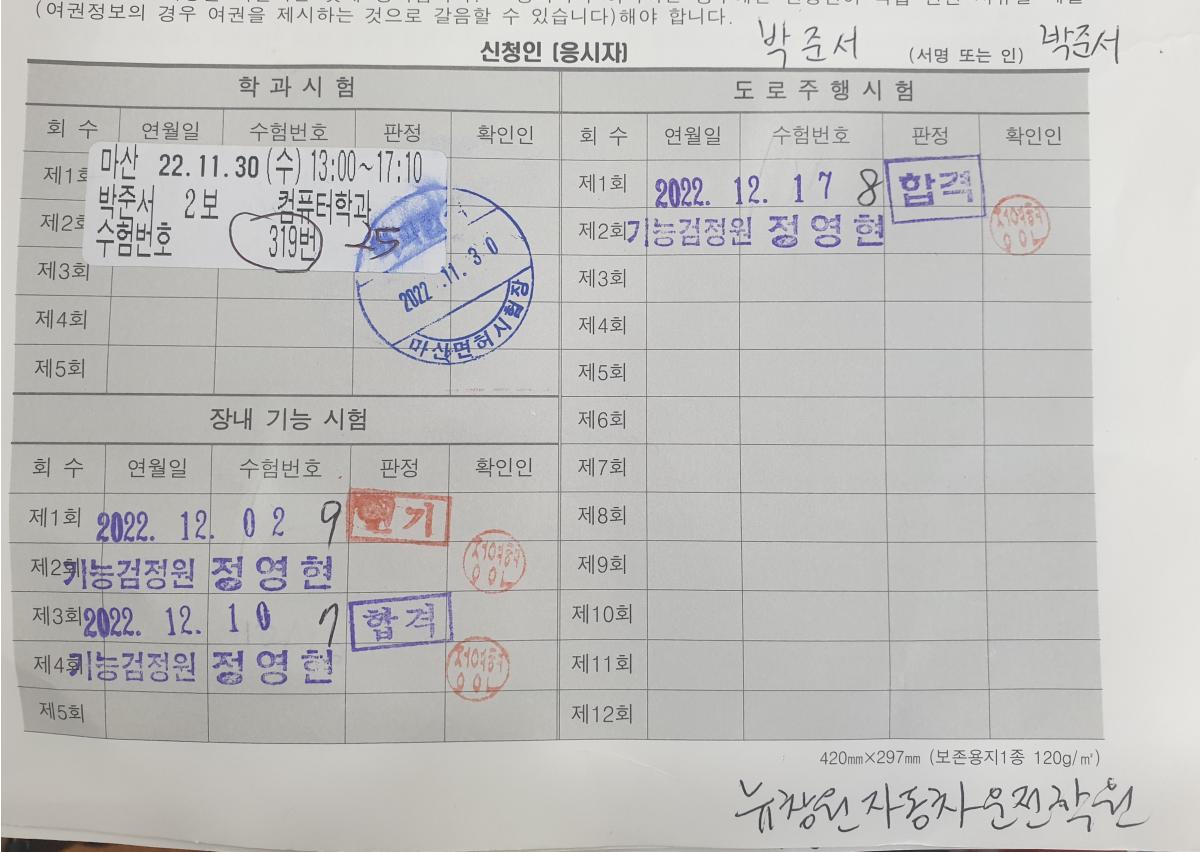 (여권정보의 경우 여권을 제시하는 것으로 갈음할 수 있습니다)해야 합니다.
신청인 (응시자) 박준서 (서명 또는 인) 박준서
학과시험
회 수 연월일 수험번호 판정 확인인
제1회
마산 22.11.30 (수) 13:00~17:10
박준서 2보 컴퓨터학과
수험번호 319번 25
제2회
2022.11.30
마산면허시험장
제3회
제4회
제5회
장내 기능 시험
회 수 연월일 수험번호 판정 확인인
제1회 2022. 12. 02 9
제2회 기능검정원 정영현
제3회 2022. 12. 10 7 합격
제4회 기능검정원 정영현
제5회
도로주행시험
회 수 연월일 수험번호 판정 확인인
제1회 2022. 12. 17 8 합격
제2회 기능검정원 정영현
제3회
제4회
제5회
제6회
제7회
제8회
제9회
제10회
제11회
제12회
420㎜×297㎜ (보존용지1종 120g/㎡)
뉴창원자동차운전학원